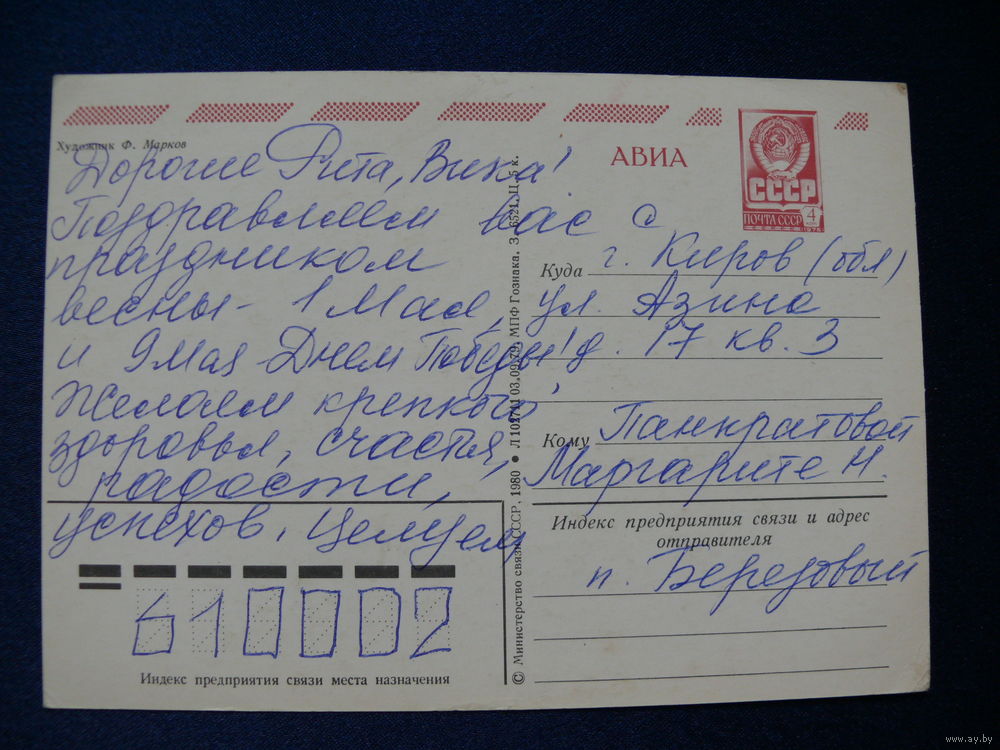 Художник Ф. Марков
Дорогие Рита, Вика!
Поздравляем вас с
праздником
весны - 1 Мая,
и 9 мая Днем Победы!
Желаем крепкого
здоровья, счастья,
радости,
успехов. Целуем
610002
Индекс предприятия связи места назначения
© Министерство связи СССР, 1980 • Л 102741 03.09.79. МПФ Гознака. З. 6521. Ц. 5 к.
АВИА
СССР
ПОЧТА СССР 4
1976
Куда г. Киров (обл)
ул. Азина
д. 17 кв. 3
Кому Панкратовой
Маргарите Н.
Индекс предприятия связи и адрес
отправителя
п. Березовый
www.ay.by